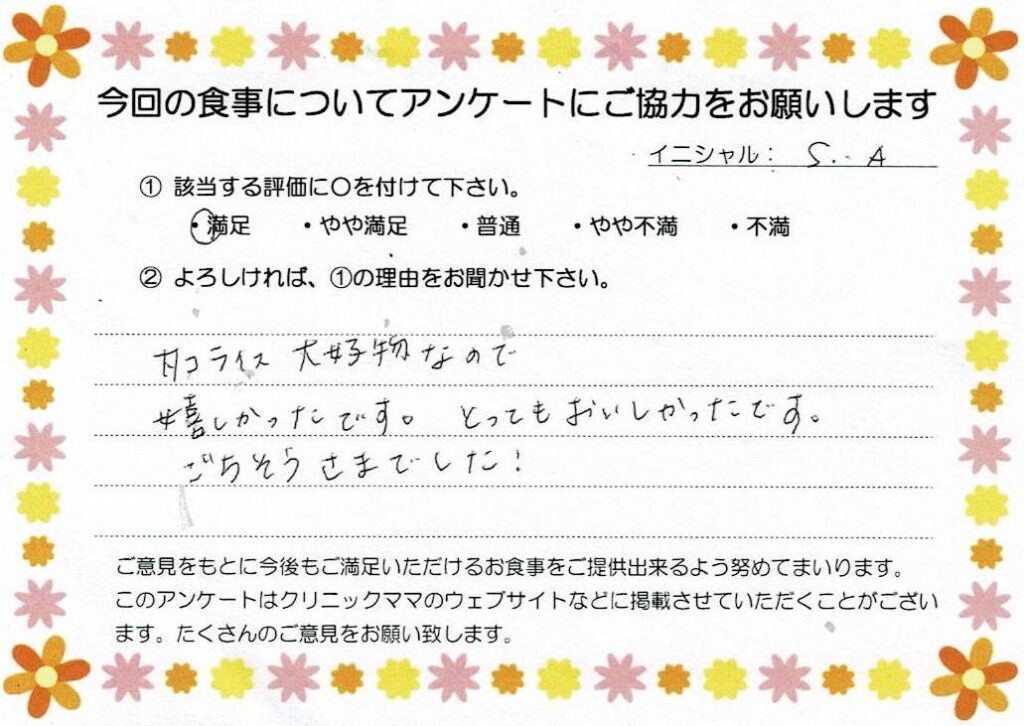 今回の食事についてアンケートにご協力をお願いします
イニシャル： S. A
① 該当する評価に〇を付けて下さい。
・満足 ・やや満足 ・普通 ・やや不満 ・不満
② よろしければ、①の理由をお聞かせ下さい。
タコライス 大好物なので
嬉しかったです。 とってもおいしかったです。
ごちそうさまでした！
ご意見をもとに今後もご満足いただけるお食事をご提供出来るよう努めてまいります。
このアンケートはクリニックママのウェブサイトなどに掲載させていただくことがござい
ます。たくさんのご意見をお願い致します。